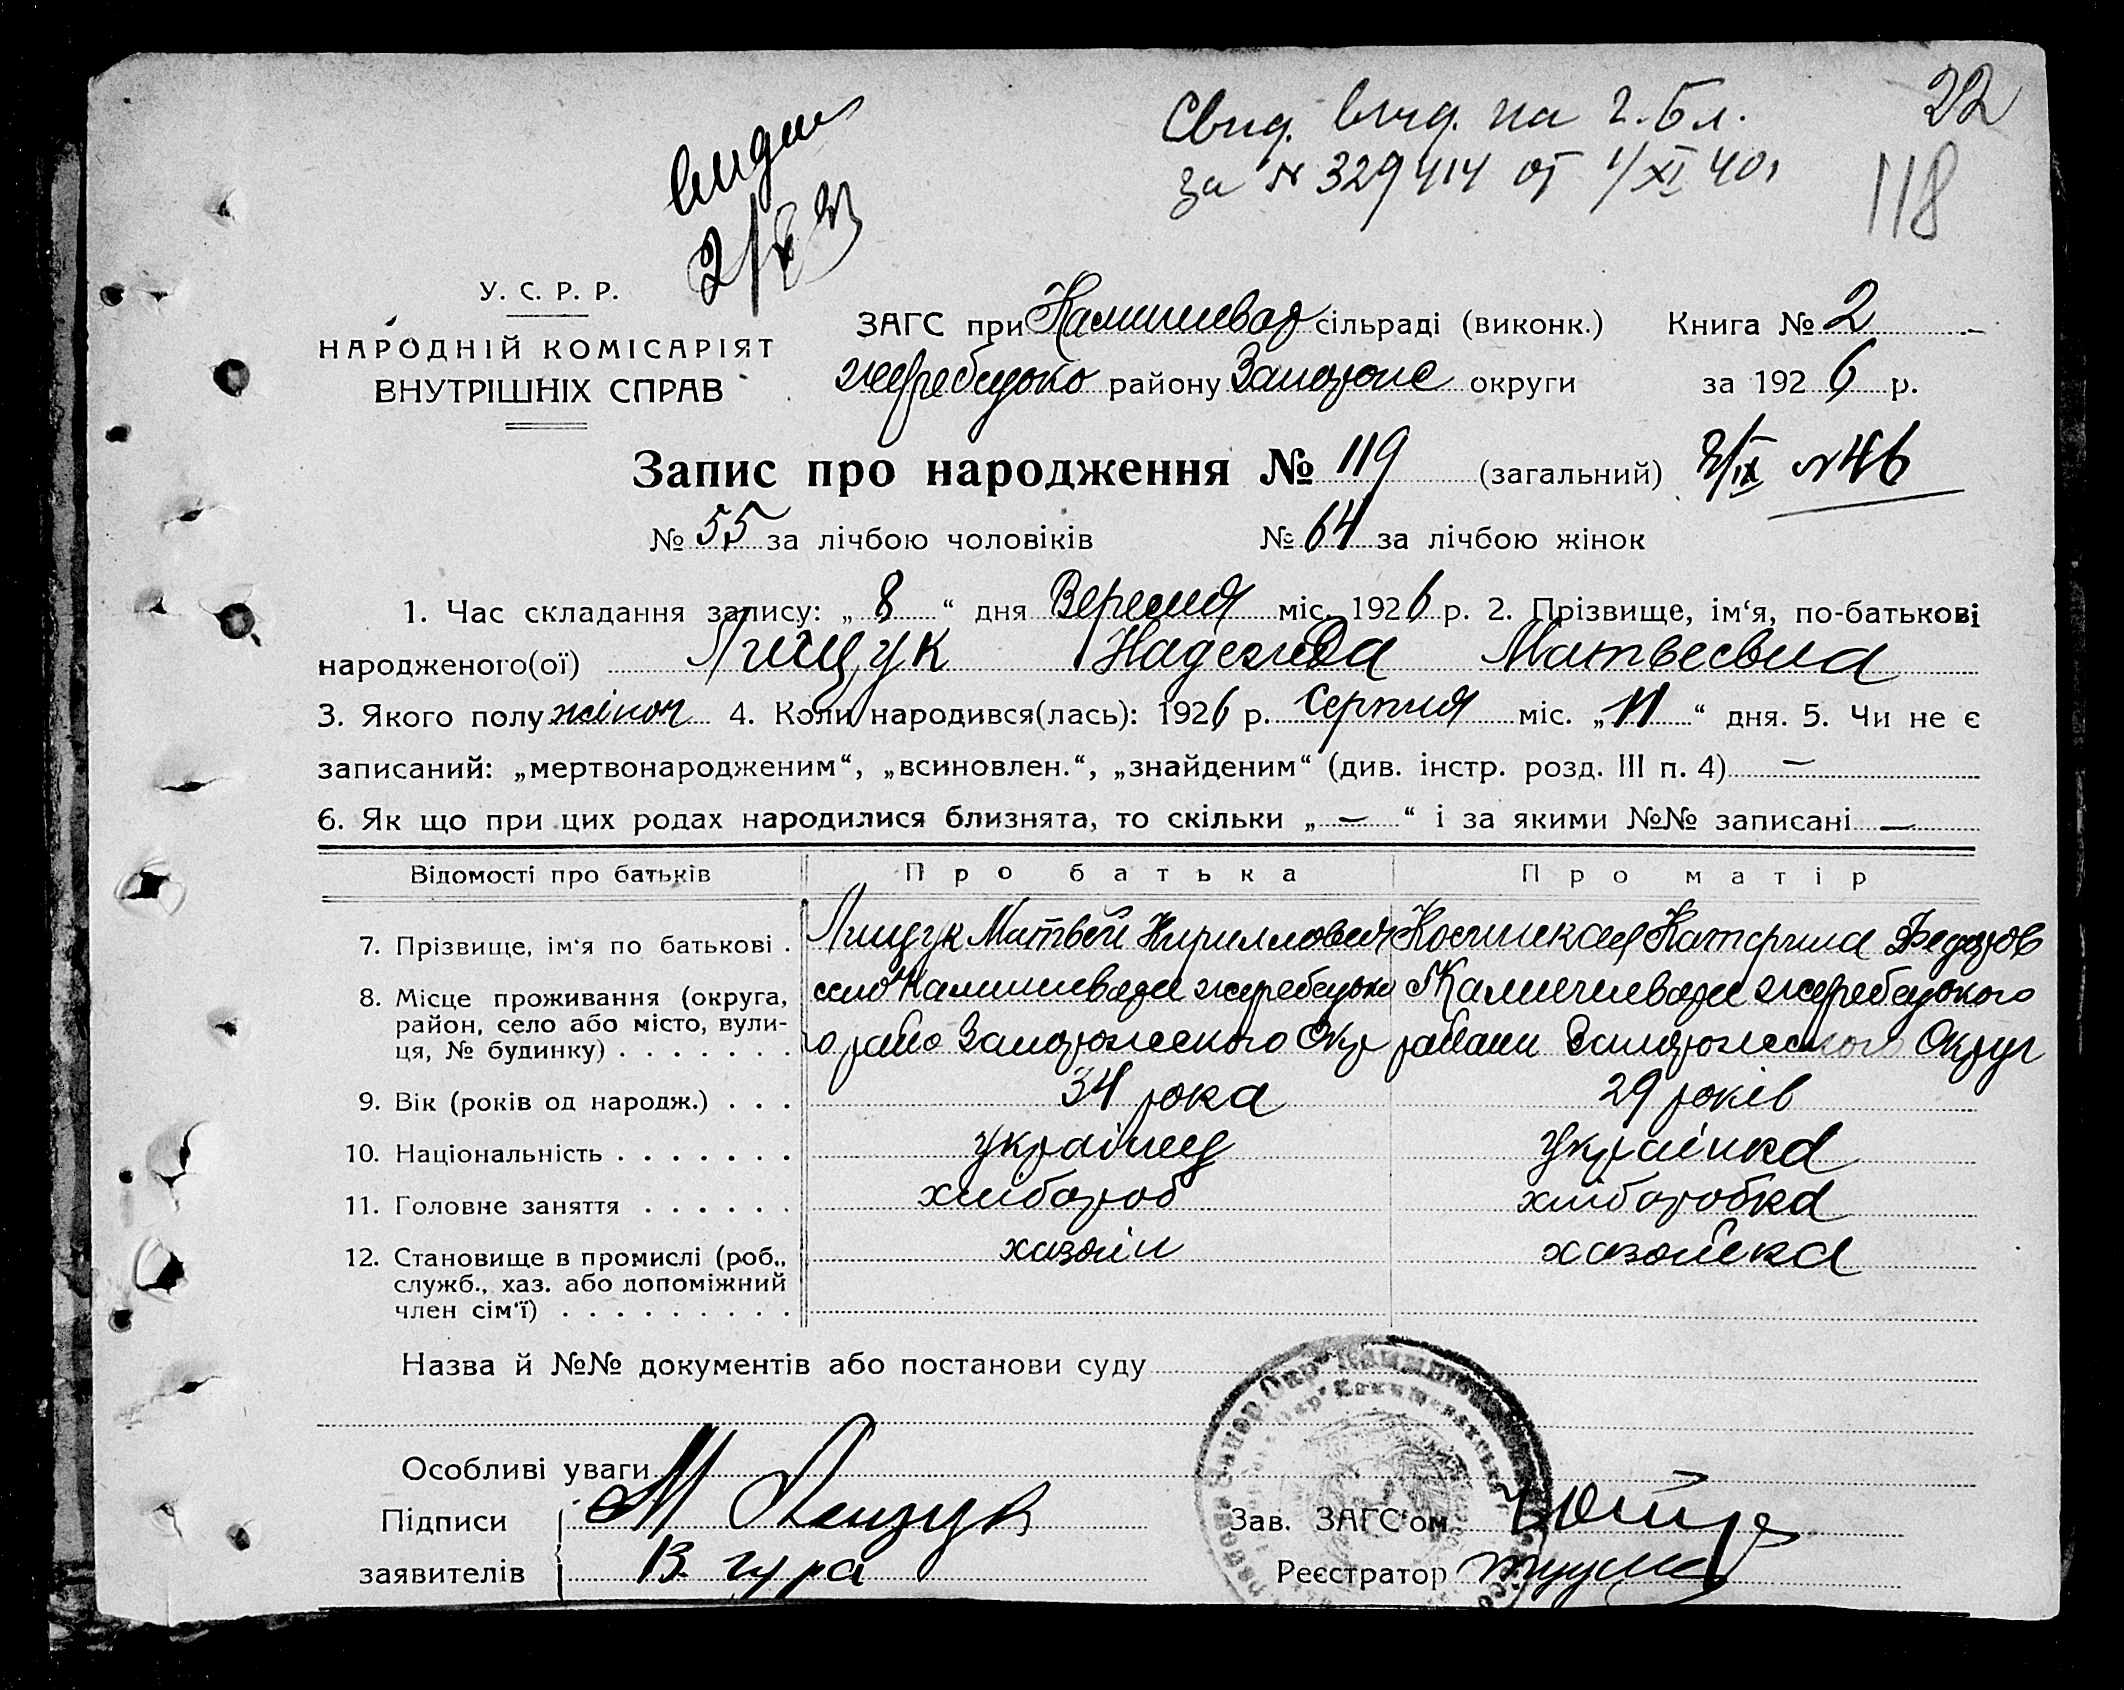 Свид. выд. на г. бл.
22
за № 329414 от 1/XI 40,
118
видан
У. С. Р. Р.
НАРОДНІЙ КОМІСАРІЯТ
ВНУТРІШНІХ СПРАВ
ЗАГС при Камишевас сільраді (виконк.) Книга № 2
жеребецько району Запорож округи за 1926 р.
Запис про народження № 119 (загальний) 8/IX № 46
№ 55 за лічбою чоловіків № 64 за лічбою жінок
1. Час складання запису: „8“ дня Вересня міс. 1926 р. 2. Прізвище, ім‘я, по-батькові
народженого(ої) Лищук Надежда Матвеевна
3. Якого полу жіноч 4. Коли народився(лась): 1926 р. серпня міс. „11“ дня. 5. Чи не є
записаний: „мертвонародженим“, „всиновлен.“, „знайденим“ (див. інстр. розд. III п. 4) —
6. Як що при цих родах народилися близнята, то скільки „—“ і за якими №№ записані —
Відомості про батьків Про батька Про матір
7. Прізвище, ім‘я по батькові . Лищук Матвей Кириллович Катерина Федоров
8. Місце проживання (округа,
район, село або місто, вули-
ця, № будинку) . . . . . . .
село Камишеваха жеребецько
го райо Запорожского Окр
Камишеваха жеребецького
района Запорожского Округ
9. Вік (років од народж.) . . . 34 рока 29 років
10. Національність . . . . . . . українец українка
11. Головне заняття . . . . . . хлибороб хліборобка
12. Становище в промислі (роб.,
служб., хаз. або допоміжний
член сім‘ї) . . . . . . . . .
хазяїн хазяйка
Назва й №№ документів або постанови суду
Особливі уваги
Підписи М Лищук Зав. ЗАГС‘ом
заявителів В. гура Реєстратор